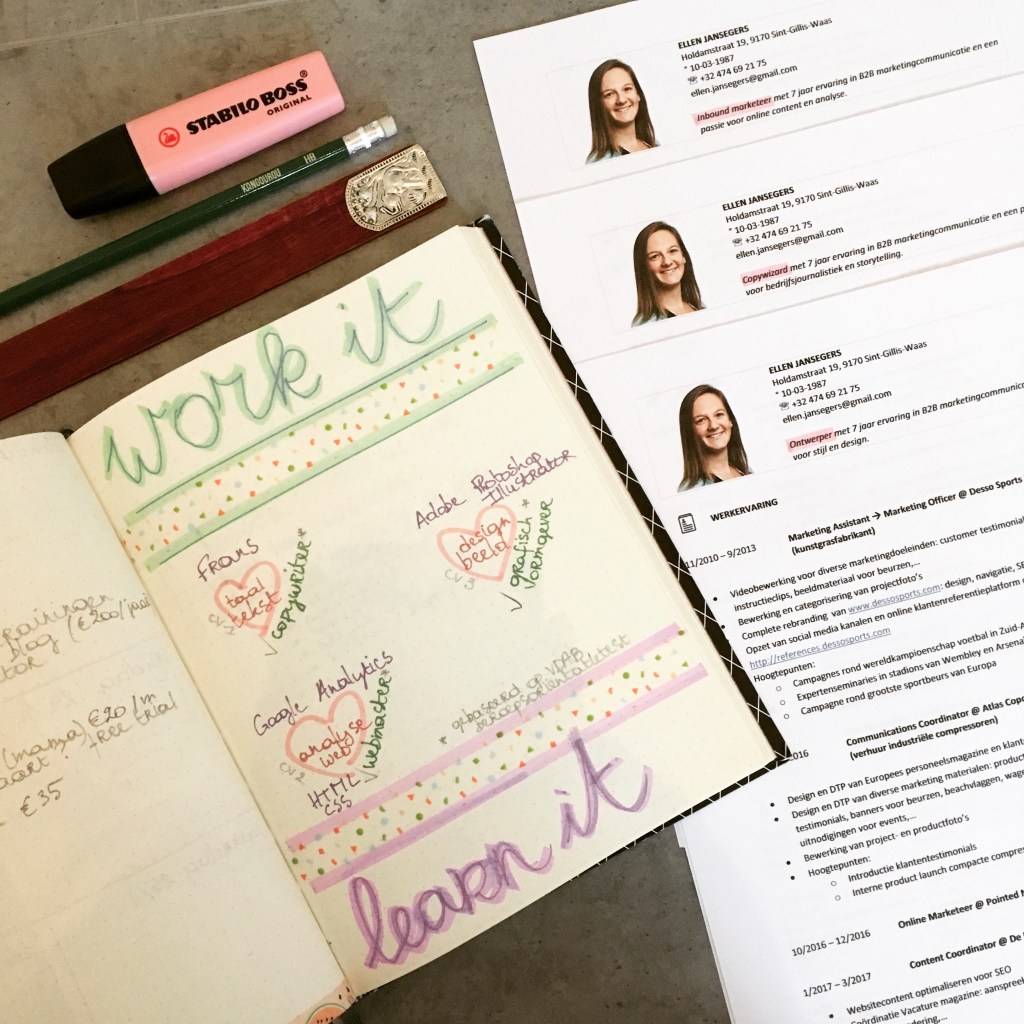 STABILO BOSS®
ORIGINAL
KANGOUROU HB
work it
Adobe Photoshop
Illustrator
design
beeld
CV 3
grafisch *
vormgever
Frans
taal
tekst
CV 1
copywriter *
Google Analytics
analyse
web
CV 2
webmaster *
HTML
CSS
* gebaseerd op VDAB
beroepsoriëntatietest
learn it
blog (€200/jaar
€20/m
(mama) free trial
€35
ELLEN JANSEGERS
Holdamstraat 19, 9170 Sint-Gillis-Waas
* 10-03-1987
☏ +32 474 69 21 75
ellen.jansegers@gmail.com
Inbound marketeer met 7 jaar ervaring in B2B marketingcommunicatie en een
passie voor online content en analyse.
ELLEN JANSEGERS
Holdamstraat 19, 9170 Sint-Gillis-Waas
* 10-03-1987
☏ +32 474 69 21 75
ellen.jansegers@gmail.com
Copywizard met 7 jaar ervaring in B2B marketingcommunicatie en een p
voor bedrijfsjournalistiek en storytelling.
ELLEN JANSEGERS
Holdamstraat 19, 9170 Sint-Gillis-Waas
* 10-03-1987
☏ +32 474 69 21 75
ellen.jansegers@gmail.com
Ontwerper met 7 jaar ervaring in B2B marketingcommunica
voor stijl en design.
WERKERVARING
11/2010 – 9/2013 Marketing Assistant → Marketing Officer @ Desso Sports
(kunstgrasfabrikant)
• Videobewerking voor diverse marketingdoeleinden: customer testimonia
instructieclips, beeldmateriaal voor beurzen,...
• Bewerking en categorisering van projectfoto's
• Complete rebranding van www.dessosports.com: design, navigatie, SE
Opzet van social media kanalen en online klantenreferentieplatform
http://references.dessosports.com
Hoogtepunten:
o Campagnes rond wereldkampioenschap voetbal in Zuid-A
o Expertenseminaries in stadions van Wembley en Arsena
o Campagne rond grootste sportbeurs van Europa
2016 Communications Coordinator @ Atlas Cop
(verhuur industriële compressoren)
• Design en DTP van Europees personeelsmagazine en klant
• Design en DTP van diverse marketing materialen: product
testimonials, banners voor beurzen, beachvlaggen, wage
uitnodigingen voor events,...
• Bewerking van project- en productfoto's
• Hoogtepunten:
o Introductie klantentestimonials
o Interne product launch compacte compres
10/2016 – 12/2016 Online Marketeer @ Pointed
1/2017 – 3/2017 Content Coordinator @ De
• Websitecontent optimaliseren voor SEO
• Coördinatie Vacature magazine: aanspree